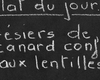 lat du jour
ésiers de
canard conf
aux lentilles